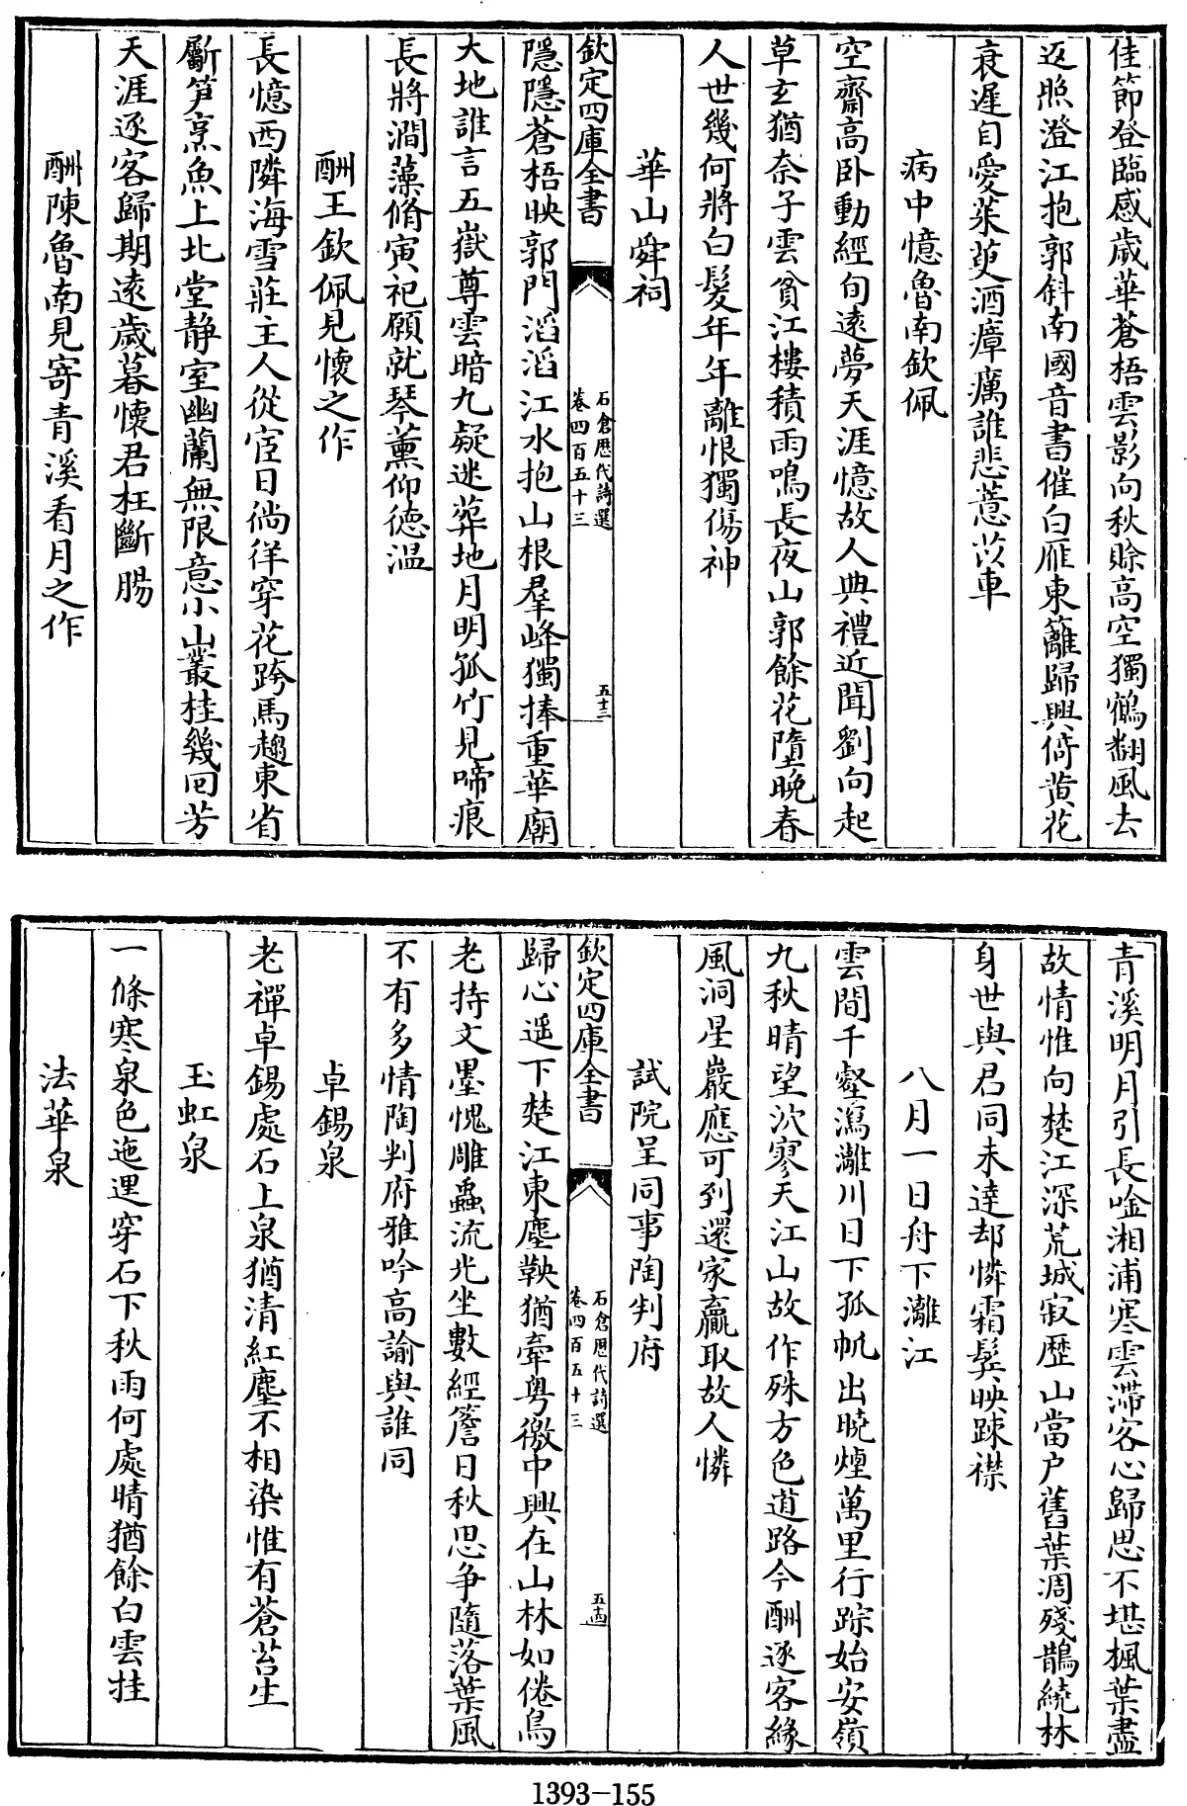 佳節登臨感歲華蒼梧雲影向秋賒高空獨鶴翻風去
返照澄江抱郭斜南國音書催白雁東籬歸興倚黄花
衰遲自愛茱萸酒瘴癘誰悲薏苡車
病中憶魯南欽佩
空齋高卧動經旬遠夢天涯憶故人典禮近聞劉向起
草玄猶奈子雲貧江樓積雨鳴長夜山郭餘花墮晚春
人世幾何將白髮年年離恨獨傷神
華山舜祠
欽定四庫全書
石倉歴代詩選
卷四百五十三
五十三
隱隱蒼梧映郭門滔滔江水抱山根羣峰獨捧重華廟
大地誰言五嶽尊雲暗九疑迷葬地月明孤竹見啼痕
長將澗藻脩寅祀願就琴薰仰德温
酬王欽佩見懷之作
長憶西隣海雪莊主人從宦日徜徉穿花跨馬趨東省
斸笋烹魚上北堂静室幽蘭無限意小山叢桂幾回芳
天涯逐客歸期遠歲暮懷君枉斷腸
酬陳魯南見寄青溪看月之作
青溪明月引長唫湘浦寒雲滯客心歸思不堪楓葉盡
故情惟向楚江深荒城寂歴山當户舊葉凋殘鵲繞林
身世與君同未達却憐霜鬂映踈襟
八月一日舟下灕江
雲間千壑瀉灕川日下孤帆出曉煙萬里行踪始安嶺
九秋晴望泬寥天江山故作殊方色道路今酬逐客緣
風洞星巖應可到還家贏取故人憐
試院呈同事陶判府
欽定四庫全書
石倉歴代詩選
卷四百五十三
五十四
歸心遥下楚江東塵鞅猶牽粤徼中興在山林如倦鳥
老持文墨愧雕蟲流光坐數經簷日秋思争隨落葉風
不有多情陶判府雅吟高諭與誰同
卓錫泉
老禪卓錫處石上泉猶清紅塵不相染惟有蒼苔生
玉虹泉
一條寒泉色迤邐穿石下秋雨何處晴猶餘白雲挂
法華泉
1393-155